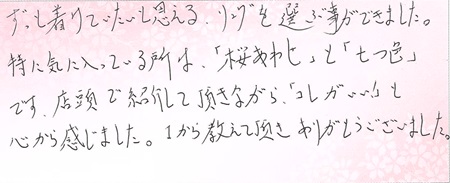 ずっと着けていたいと思える、リングを選ぶ事ができました。
特に気に入っている所は、「桜あわせ」と「七つ色」
です。店頭で紹介して頂きながら、「コレがいい!」と
心から感じました。1から教えて頂きありがとうございました。